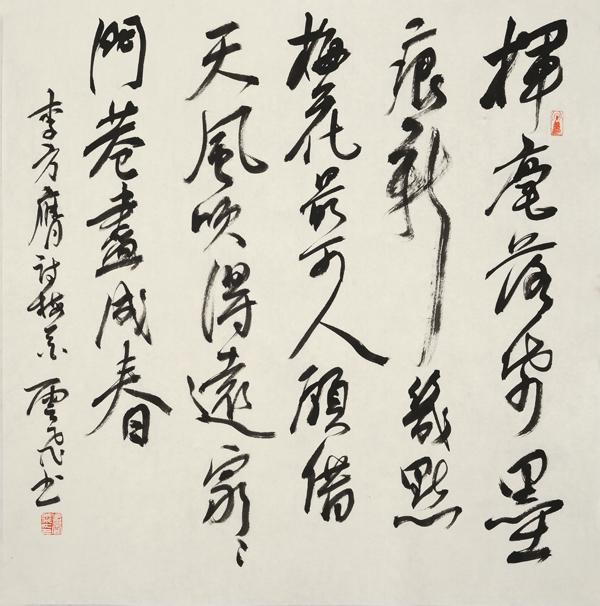 揮毫落帋墨
痕新幾點
梅花最可人願借
天風吹得遠家〻
門巷盡成春
李方膺詩梅花 雲飛書